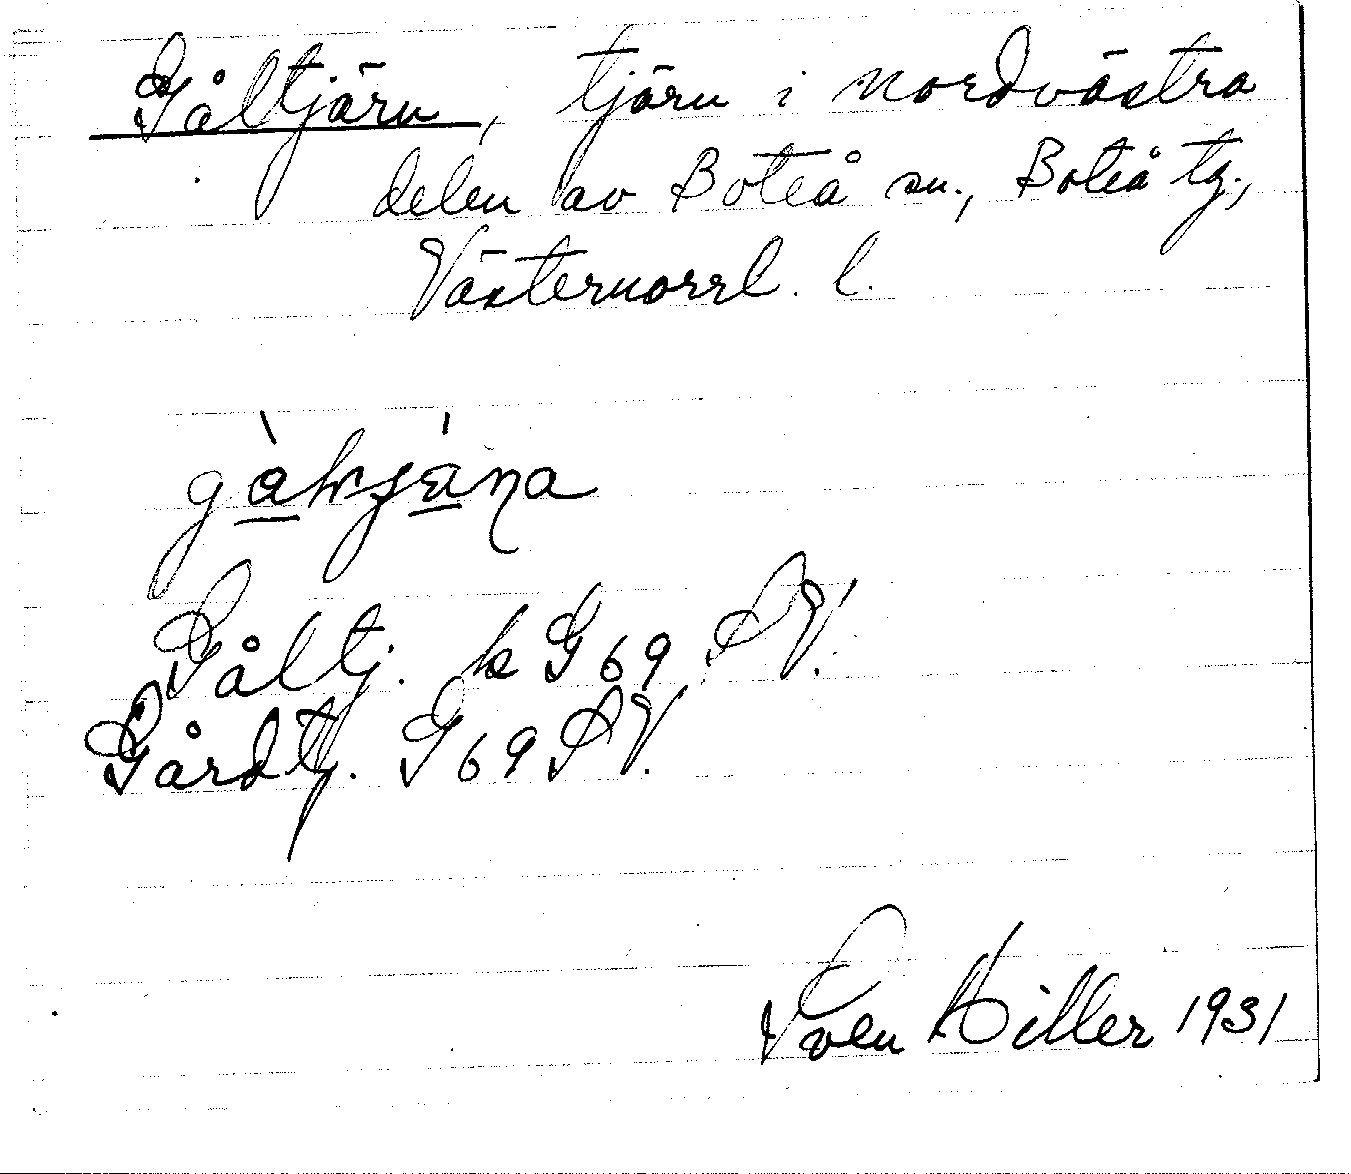 Gåltjärn, tjärn i nordvästra
delen av Boteå sn., Boteå tg.,
Västernorrl. l.
Gåltj. k G69 SV.
Gårdtj. G69 SV.
Sven Hiller 1931